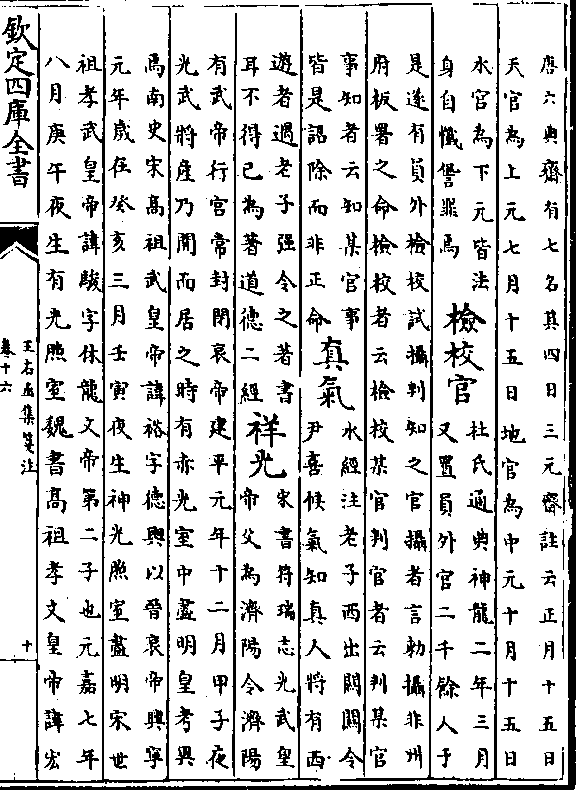 唐六典齋有七名其四日三元齋註云正月十五日
天官為上元七月十五日地官為中元十月十五日
水官為下元皆法
身自懺愆罪焉
檢校官
杜氏通典神龍二年三月
又置員外官二千餘人于
是遂有員外檢校試攝判知之官攝者言勅攝非州
府板署之命檢校者云檢校某官判官者云判某官
事知者云知某官事
皆是詔除而非正命
真氣
水經注老子西出關關令
尹喜候氣知真人將有西
遊者遇老子强令之著書
耳不得已為著道德二經
祥光
宋書符瑞志光武皇
帝父為濟陽令濟陽
有武帝行宮常封閉哀帝建平元年十二月甲子夜
光武將產乃開而居之時有赤光室中盡明皇考異
焉南史宋高祖武皇帝諱裕字德輿以晉哀帝興寧
元年歲在癸亥三月壬寅夜生神光照室盡明宋世
祖孝武皇帝諱駿字休龍文帝第二子也元嘉七年
八月庚午夜生有光照室魏書高祖孝文皇帝諱宏
欽定四庫全書
王右丞集箋注
卷十六
十